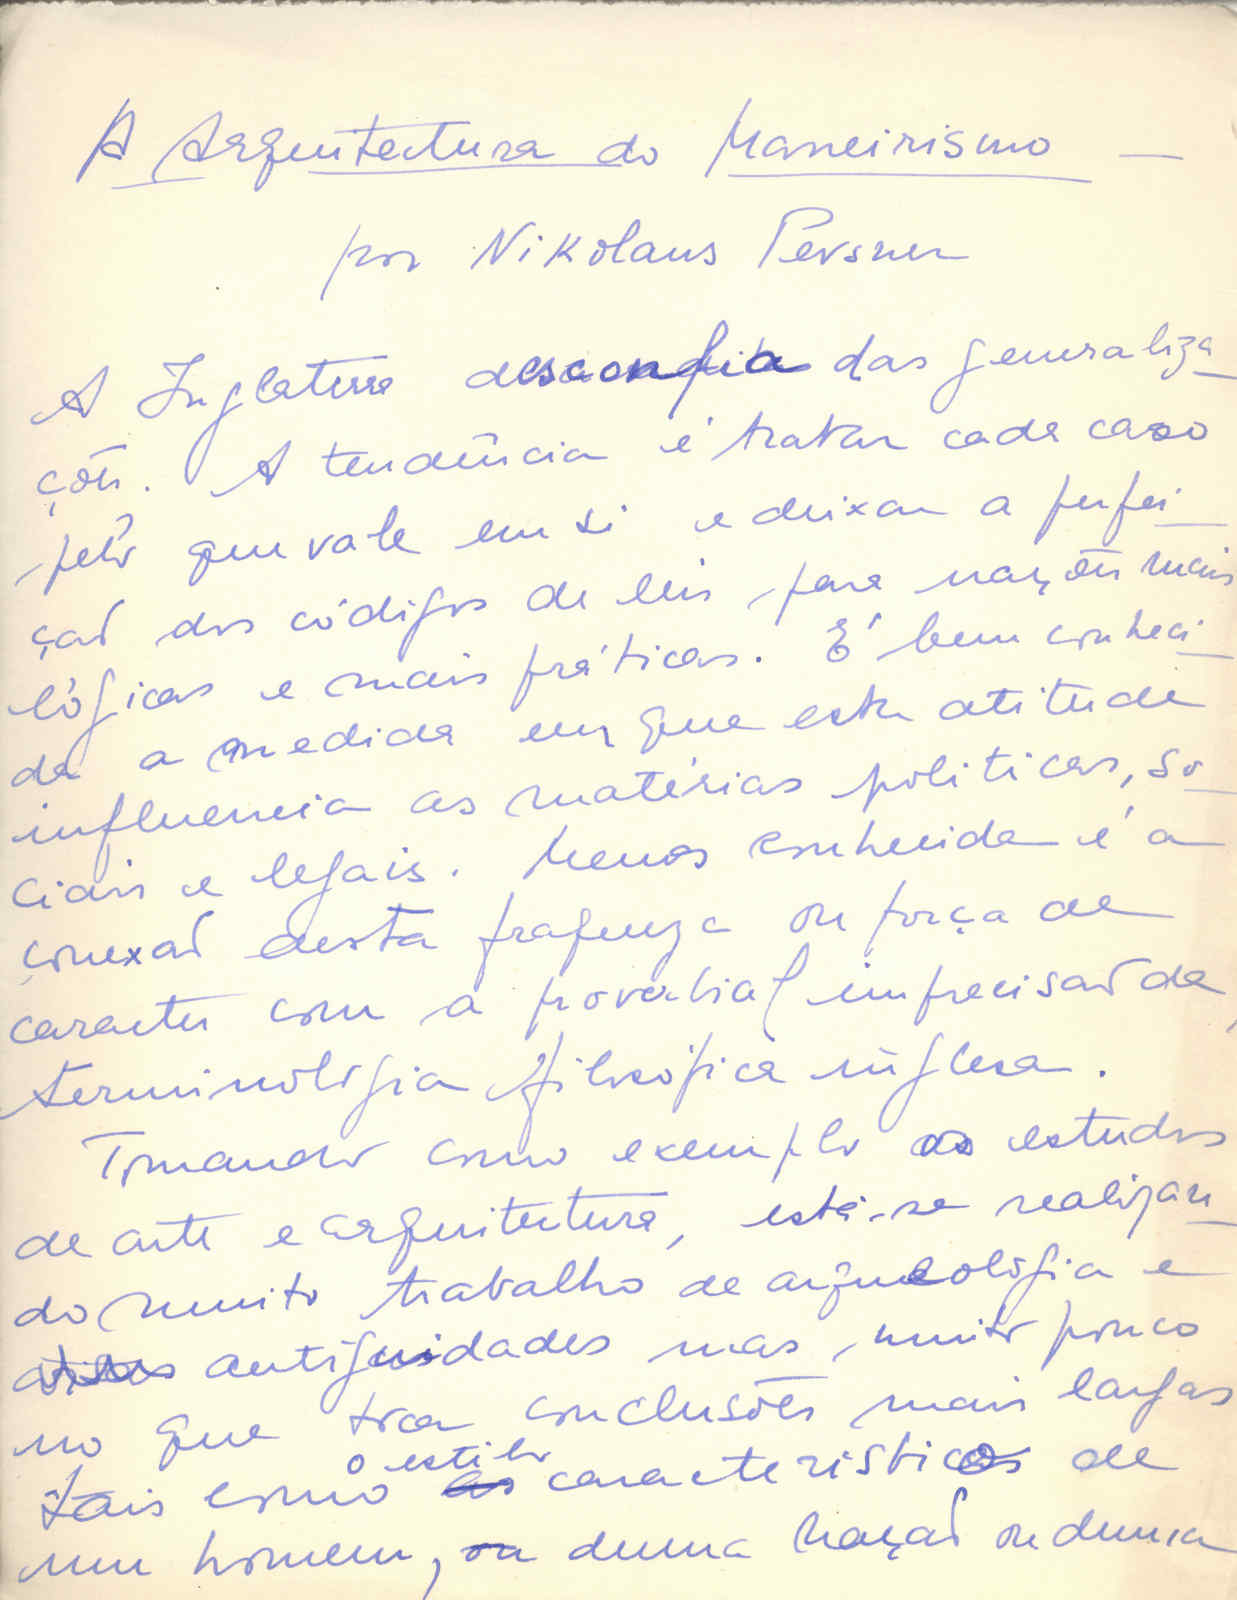 A Arquitectura do Maneirismo —
por Nikolaus Pevsner
A Inglaterra desconfia das generaliza-
ções. A tendência é tratar cada caso
pelo que vale em si e deixar a perfei-
ção dos códigos de leis para nações mais
lógicas e mais práticas. É bem conheci-
da a medida em que esta atitude
influencia as matérias politicas, so-
ciais e legais. Menos conhecida é a
conexão desta fraqueza ou força de
caracter com a proverbial imprecisão da
terminologia filosófica inglesa.
Tomando como exemplo os estudos
de arte e arquitectura, está-se realizan-
do muito trabalho de arqueologia e
antiguidades mas, muito pouco
no que toca conclusões mais largas
tais como o estilo caracteristico de
um homem, duma nação ou duma